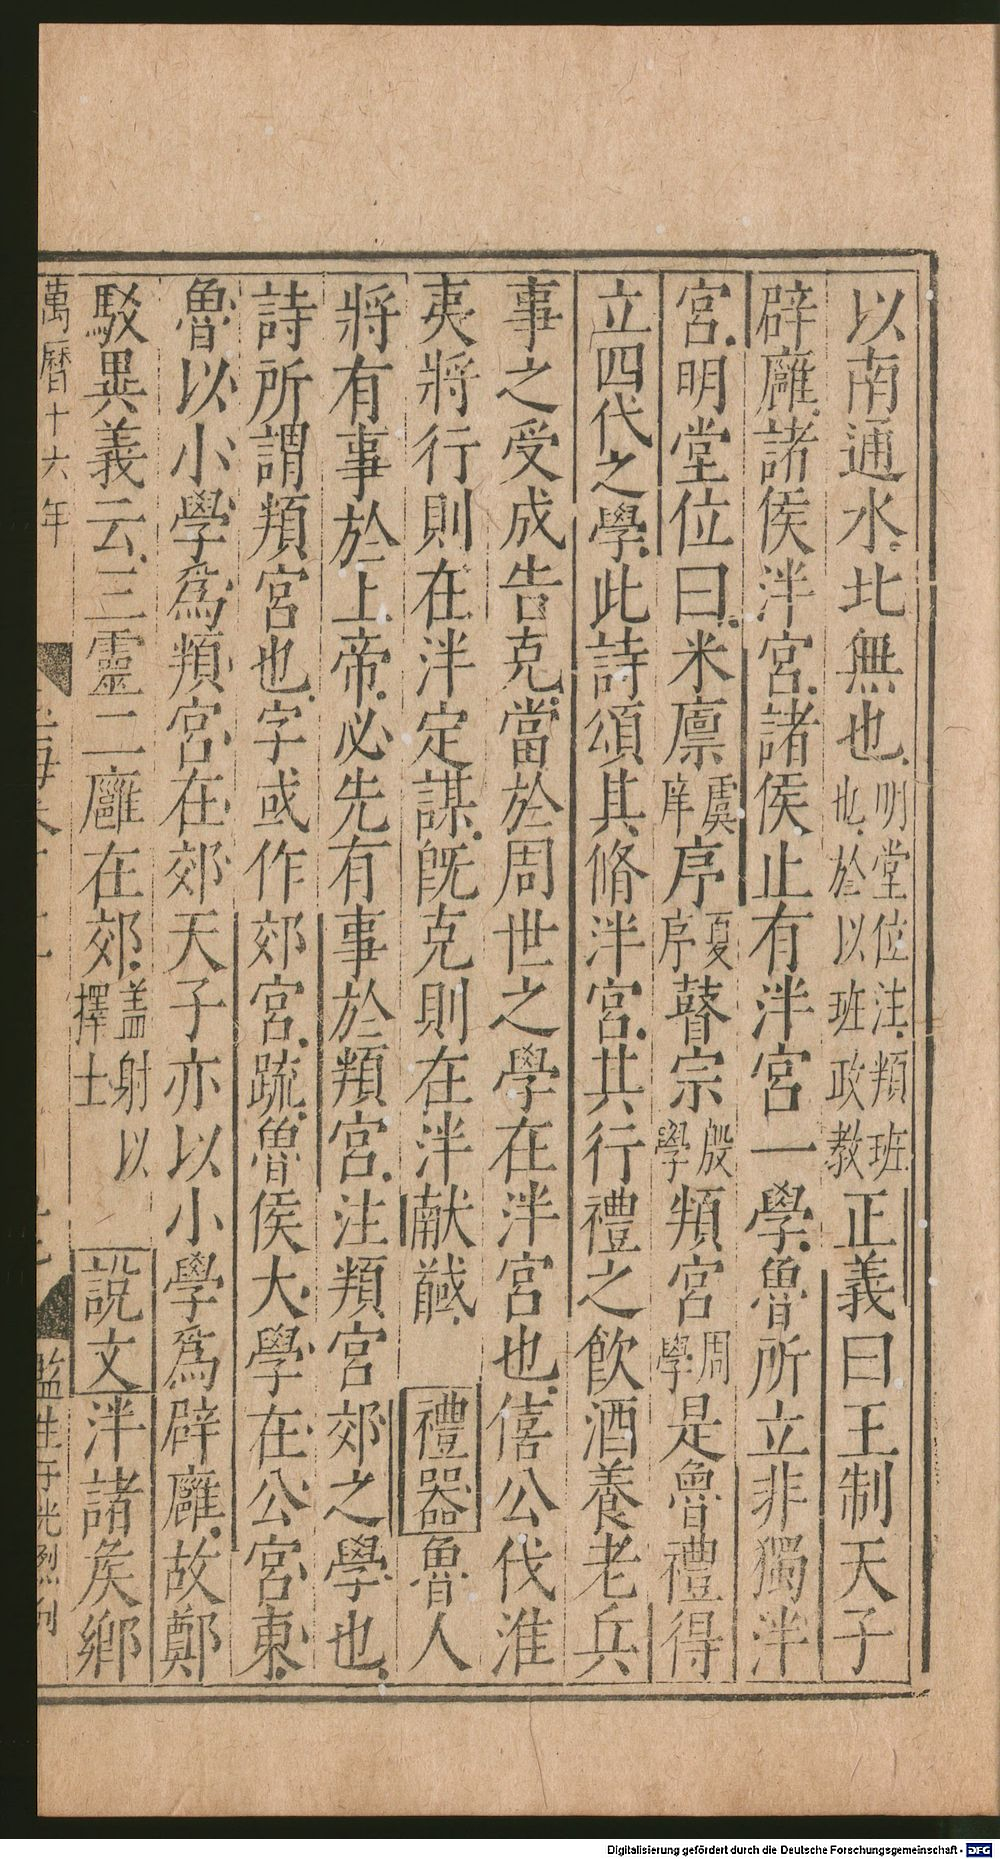 以南通水北無也明堂位注頖班也於以班政教正義曰王制天子
辟廱諸侯泮宮諸侯止有泮宮一學魯所立非獨泮
宮明堂位曰米廪虞庠序夏序瞽宗殷學頖宮周學是魯禮得
立四代之學此詩頌其脩泮宮其行禮之飲酒養老兵
事之受成告克當於周世之學在泮宮也僖公伐淮
夷將行則在泮定謀旣克則在泮献馘 禮器魯人
將有事於上帝必先有事於頖宮注頖宮郊之學也
詩所謂頖宮也字或作郊宮疏魯侯大學在公宮東
魯以小學爲頖宮在郊天子亦以小學爲辟廱故鄭
駁異義云三靈二廱在郊盖射以擇士 說文泮諸矦鄉
萬曆十六年
監生
Digitalisierung gefördert durch die Deutsche Forschungsgemeinschaft - DFG